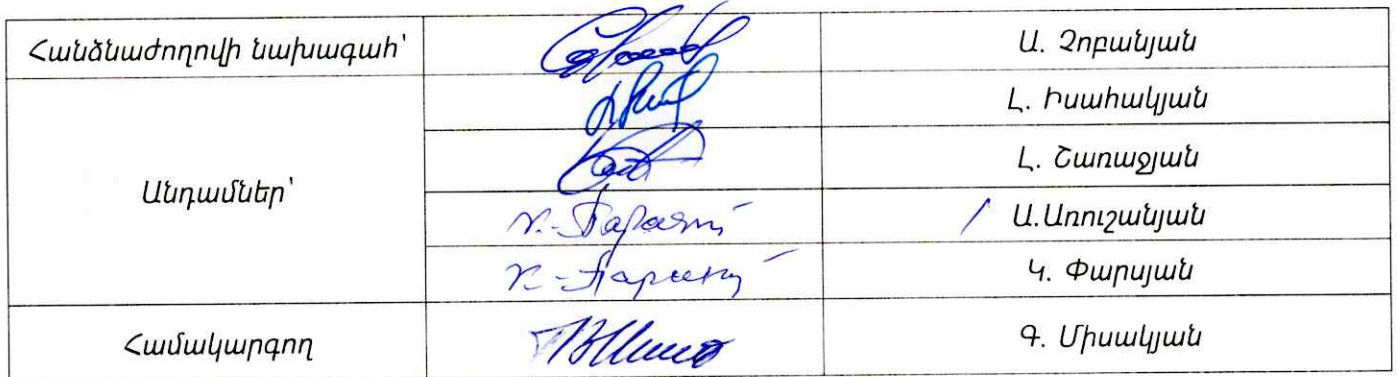 Հանձնաժողովի նախագահ՝ Ա. Չոբանյան
Լ. Իսահակյան
Անդամներ՝ Լ. Շառաջյան
Ա.Առուշանյան
Կ. Փարսյան
Համակարգող Գ. Միսակյան